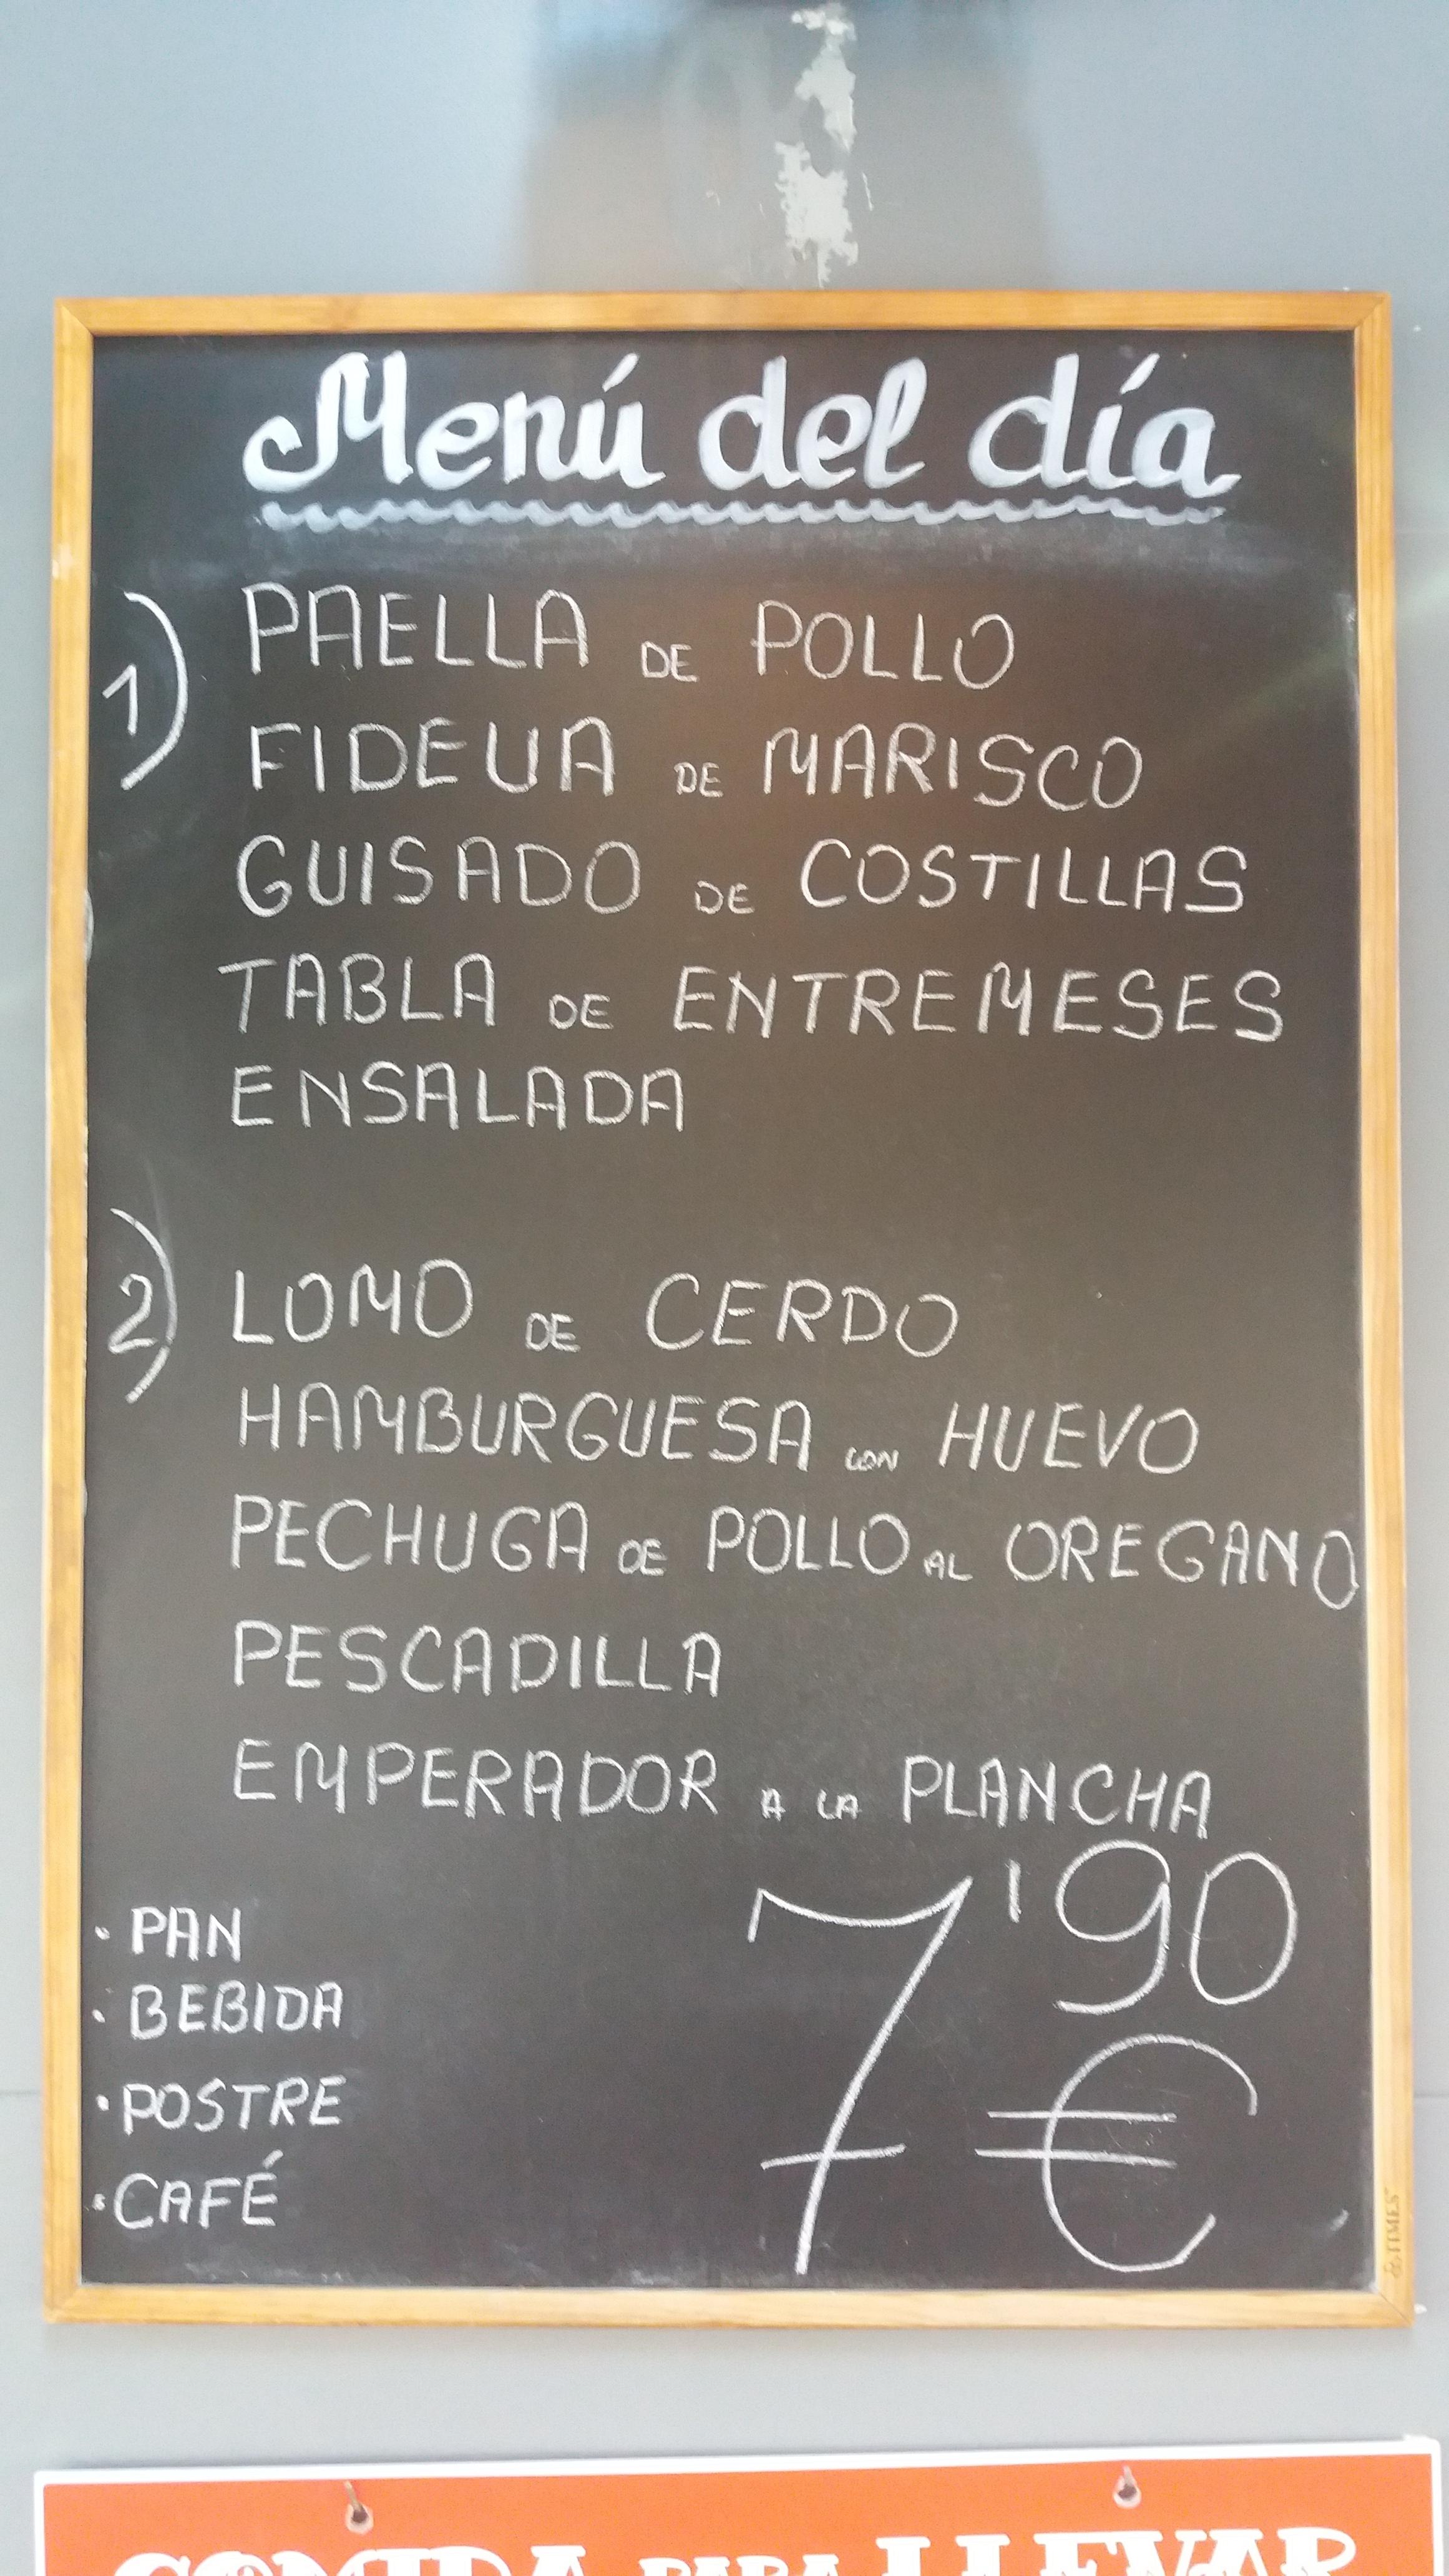 Menú del día
1) PAELLA DE POLLO
FIDEUA DE MARISCO
GUISADO DE COSTILLAS
TABLA DE ENTREMESES
ENSALADA
2) LOMO DE CERDO
HAMBURGUESA CON HUEVO
PECHUGA DE POLLO AL OREGANO
PESCADILLA
EMPERADOR A LA PLANCHA
· PAN
· BEBIDA
· POSTRE
· CAFÉ
7'90
€
TIMES
COMIDA PARA LLEVAR